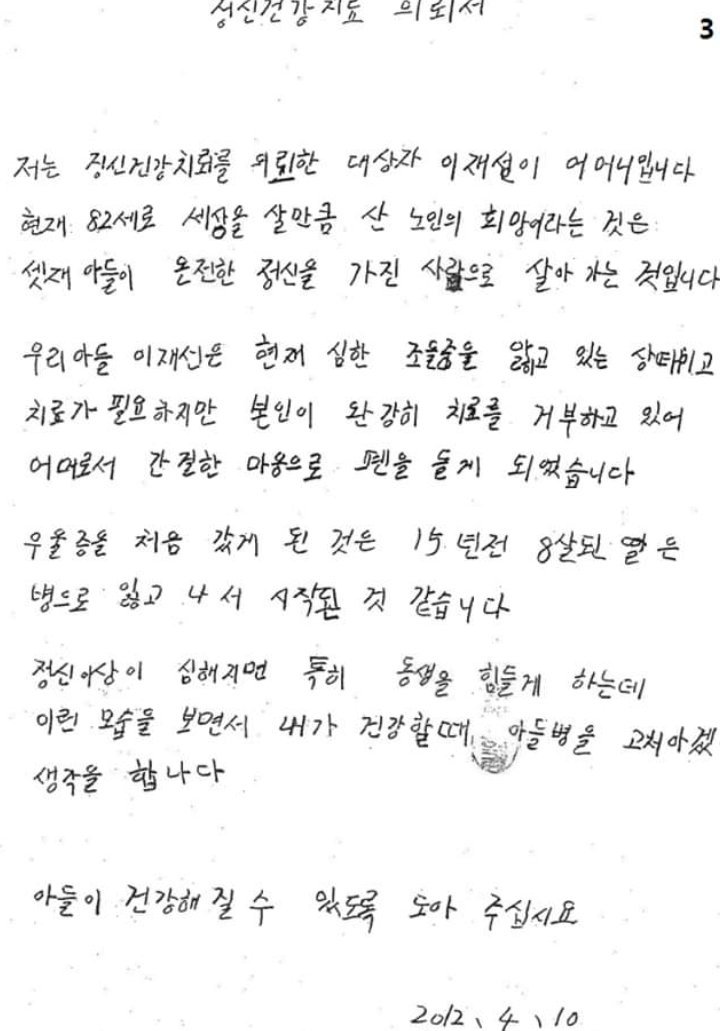 정신건강치료 의뢰서
3
저는 정신건강치료를 의뢰한 대상자 이재선이 어머니입니다
현재 82세로 세상을 살만큼 산 노인의 희망이라는 것은
셋재 아들이 온전한 정신을 가진 사람으로 살아 가는 것입니다
우리아들 이재선은 현재 심한 조울증을 앓고 있는 상태이고
치료가 필요하지만 본인이 완강히 치료를 거부하고 있어
어머로서 간절한 마음으로 펜을 들게 되었습니다
우울증을 처음 갔게 된 것은 15년전 8살된 딸은
병으로 잃고 나서 시작된 것 같습니다
정신이상이 심해지면 특히 동생을 힘들게 하는데
이런 모습을 보면서 내가 건강할때 아들병을 고쳐야겠
생각을 합나다
아들이 건강해 질 수 있도록 도아 주십시요
2012、4、10